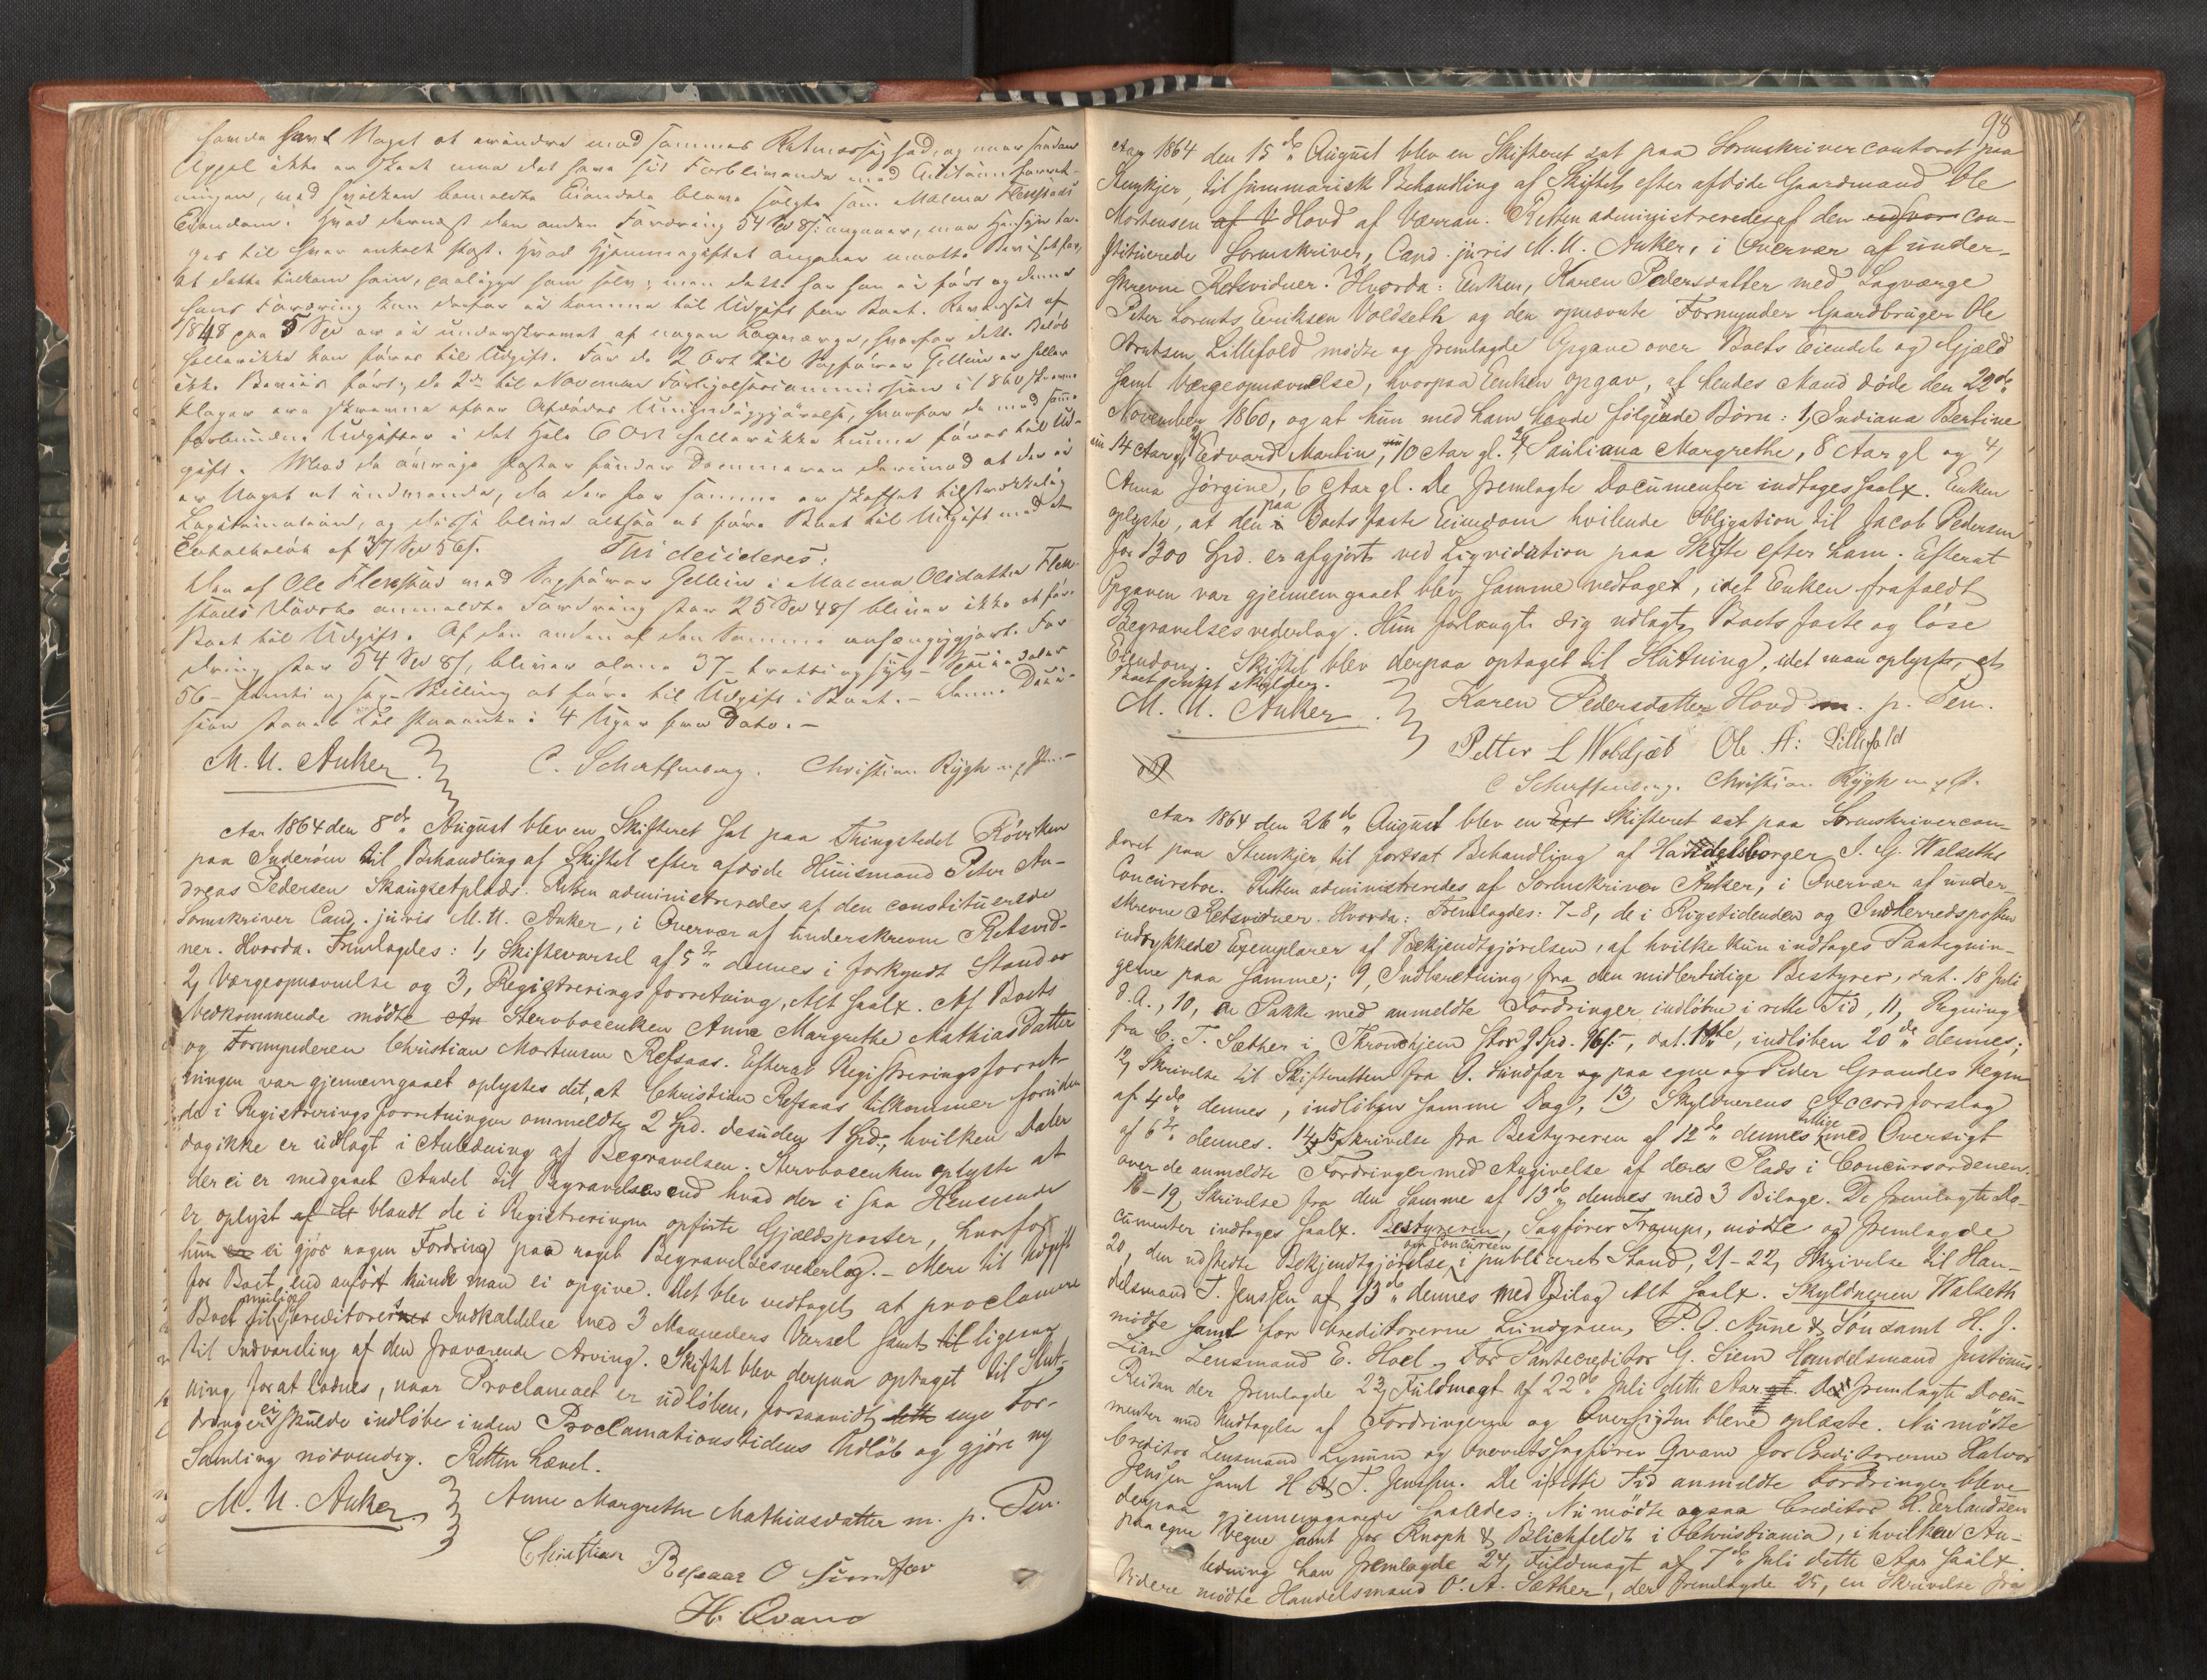 havde havt Noget at erindre mod sammes Retmæssighed, og naar saadan
Appel ikke er skeet maa det have sit Forblivende med Auctionsforret-
ningen, ved hvilken bemeldte Eiendele bleve solgte som Malena Flekstads
Eiendom. Hvad dernæst den anden Fordring 54 Spd 8 s. angaaer, maa Hensyn ta-
ges til hver enkelt Post. Hvad Hjemmegiftet angaaer maatte Beviset for,
at dette tilkom ham, paaligge ham selv; men dette har han ei ført og denne
hans Fordring kan derfor ei komme til Udgift for Boet. Beviset af
1848 paa 5 Spd er ei underskrevet af nogen Laugværge, hvorfor dets Beløb
hellerikke kan føres til Udgift. For de 2 Ort til Sagfører Gellein er heller
ikke Beviis ført; de 2de til November Forligelsescommission i 1860 skrevne
Klager ere skrevne efter Afdødes Umyndiggjørelse, hvorfor de med samme
forbundne Udgifter i det Hele 6 Ort hellerikke kunne føres til Ud-
gift. Mod de øvrige Poster finder Dommeren derimod at der ei
er Noget at indvende, da der for samme er skaffet tilstrækkelig
Legitimation, og disse blive altsaa at føre Boet til Udgift med et
Totalbeløb af 37 Spd 56 s.
Thi decideres:
Den af Ole Flekstad med Sagfører Gellein i Malena Olsdatter Flek-
stads Dødsbo anmeldte Fordring stor 25 Spd 48 s bliver ikke at føre
Boet til Udgift. Af den anden af den Samme anhængiggjort For-
dring stor 54 Spd 8 s, bliver alene 37 – tretti og syv – Speciedaler
56 – femti og sex – Skilling at føre til Udgift i Boet. – Denne Deci-
sion staaer til Paaanke i 4 Uger fra Dato. –
M. U. Anker
C. Scharffenberg. Christian Rygh m. p. Pen
Aar 1864 den 8de August blev en Skifteret sat paa Thingstedet Røviken
paa Inderøen til Behandling af Skiftet efter afdøde Huusmand Peter An-
dreas Pedersen Skaugsetplads. Retten administreredes af den constituerede
Sorenskriver Cand. juris M. U. Anker, i Overvær af underskrevne Retsvid-
ner. Hvorda. Fremlagdes: 1, Skiftevarsel af 5te dennes i forkyndt Stand
2, Værgeopnævnelse og 3, Registreringsforretning, Alt saalx. Af Boets
Vedkommende mødte En Stervboenken Anne Margrethe Mathiasdatter
og Formynderen Christian Mortensen Refsaas. Efterat Registreringsforret-
ningen var gjennemgaaet oplystes det, at Christian Refsaas tilkommer foruden
de i Registreringsforretningen ommeldte 2 Spd. desuden 1 Spd., hvilken Daler
dog ikke er udlagt i Anledning af Begravelsen. Stervboenken oplyste at
der ei er medgaaet Andet til Begravelsen end hvad der i saa Henseende
er oplyst af de blandt de i Registreringen opførte Gjældsposter, hvorfor
hun ei gjør nogen Fordring paa noget Begravelsesvederlag. – Mere til Udgift
for Boet, end anført kunde man ei opgive. Det blev vedtaget, at proclamere
Boet til mulige Creditorernes Indkaldelse med 3 Maaneders Varsel samt til ligesom
til Indvarsling af den fraværende Arving. Skiftet blev derpaa optaget til Slut-
ning forat lodnes, naar Proclamaet er udløben, forsaavidt dette nye For-
dringer ei skulde indløbe inden Proclamationstidens Udløb og gjøre ny
Samling nødvendig. Retten hævet.
M. U. Anker
Anne Margrethe Mathiasdatter m. p. Pen.
Christian Refsaas O Sundfær
H. Qvam
98
Aar 1864 den 15de August blev en Skifteret sat paa Sorenskrivercontoret paa
Stenkjer, til summarisk Behandling af Skiftet efter afdøde Gaardmand Ole
Mortensen af V Hovd af Værran. Retten administreredes af den edsvor con-
stituerede Sorenskriver, Cand. juris M. U. Anker, i Overvær af under-
skrevne Retsvidner. Hvorda: Enken, Karen Pedersdatter med Laugværge
Peter Lorents Eeriksen Voldseth og den opnævnte Formynder Gaardbruger Ole
Arntsen Lillefold mødte og fremlagde Opgave over Boets Eiendele og Gjæld
samt Værgeopnævnelse, hvorpaa Enken opgav, at hendes Mand døde den 22de
November 1860, og at hun med ham havde følgende Børn: 1, Indiana Bertine
nu 14 Aar gl, 2, Edvard Martin, nu 10 Aar gl. 3, Pauliana Margrethe, 8 Aar gl og 4,
Anna Jørgine, 6 Aar gl. De fremlagte Documenter indtages saalx. Enken
oplyste, at den i paa Boets faste Eiendom hvilende Obligation til Jacob Pedersen
for 1300 Spd. er afgjort ved Liqvidation paa Skifte efter ham. Efterat
Opgaven var gjennemgaaet blev samme vedtaget, idet Enken frafaldt
Begravelsesvederlag. Hun forlangte sig udlagt Boets faste og løse
Eiendom. Skiftet blev derpaa optaget til Slutning, idet man oplyste, at
Boet Intet skylder.
M. U. Anker
Karen Pedersdatter Hovd m. p. Pen.
Petter L Woldsæt Ole A: Lillefold
C Scharffenberg. Christian Rygh m. p. P.
Aar 1864 den 26de August blev en Ext Skifteret sat paa Sorenskrivercon-
toret paa Stenkjer til fortsat Behandling af Handelsborger J. G. Walseths
Concursbo. Retten administreredes af Sorenskriver Anker, i Overvær af under-
skrevne Retsvidner. Hvorda: Fremlagdes: 7–8, de i Rigstidenden og Indherredsposten
indrykkede Exemplarer af Bekjendtgjørelsen, af hvilke kun indtages Paategnin-
gerne paa samme; 9, Indberetning fra den midlertidige Bestyrer, dat. 18 Juli
d. A., 10, en Pakke med anmeldte Fordringer indløbne i rette Tid, 11, Regning
fra C. T. Sæther i Throndhjem stor 9 Spd. 96 s., dat. 10de, indløben 20de dennes;
12, Skrivelse til Skifteretten fra O. Sundfær og paa egne og Peder Grandes Vegne
af 4de dennes, indløben samme Dag, 13, Skyldnerens Accordforslag
af 6te dennes. 14, 15, Skrivelse fra Bestyreren af 12te dennes tillige med Oversigt
over de anmeldte Fordringer med Angivelse af deres Plads i Concursordenen.
16–19, Skrivelse fra den Samme af 13de dennes med 3 Bilage. De fremlagte Do-
cumenter indtages saalx. Bestyreren, Sagfører Trampe, mødte og fremlagde
20, den udstedte Bekjendtgjørelse om Concursen i publiceret Stand, 21–22, Skrivelse til Han-
delsmand T. Jenssen af 13de dennes med Bilag Alt saalx. Skyldneren Walseth
mødte samt for Creditorerne Lundgreen, P. O. Aune & Søn samt H. J.
Lian Lensmand E. Hoel. For Pantecreditor G. Siem Handelsmand Justinus
Reitan der fremlagde 23, Fuldmagt af 22de Juli dette Aar. De fremlagte Docu-
menter med Undtagelse af Fordringerne og Oversigten bleve oplæste. Nu mødte
Creditor Lensmand Lynum og Overretssagfører Qvam for Creditorerne Halvor
Jenssen samt H & T. Jenssen. De i rette Tid anmeldte Fordringer bleve
derpaa gjennemgaaede saaledes. Nu mødte ogsaa Creditor H. Erlandsen
paa egne Vegne samt for Knoph & Blichfeldt i Christiania, i hvilken An-
ledning han fremlagde 24, Fuldmagt af 7de Juli dette Aar saalx.
Videre mødte Handelsmand O. A. Sæther, der fremlagde 25, en Skrivelse fra